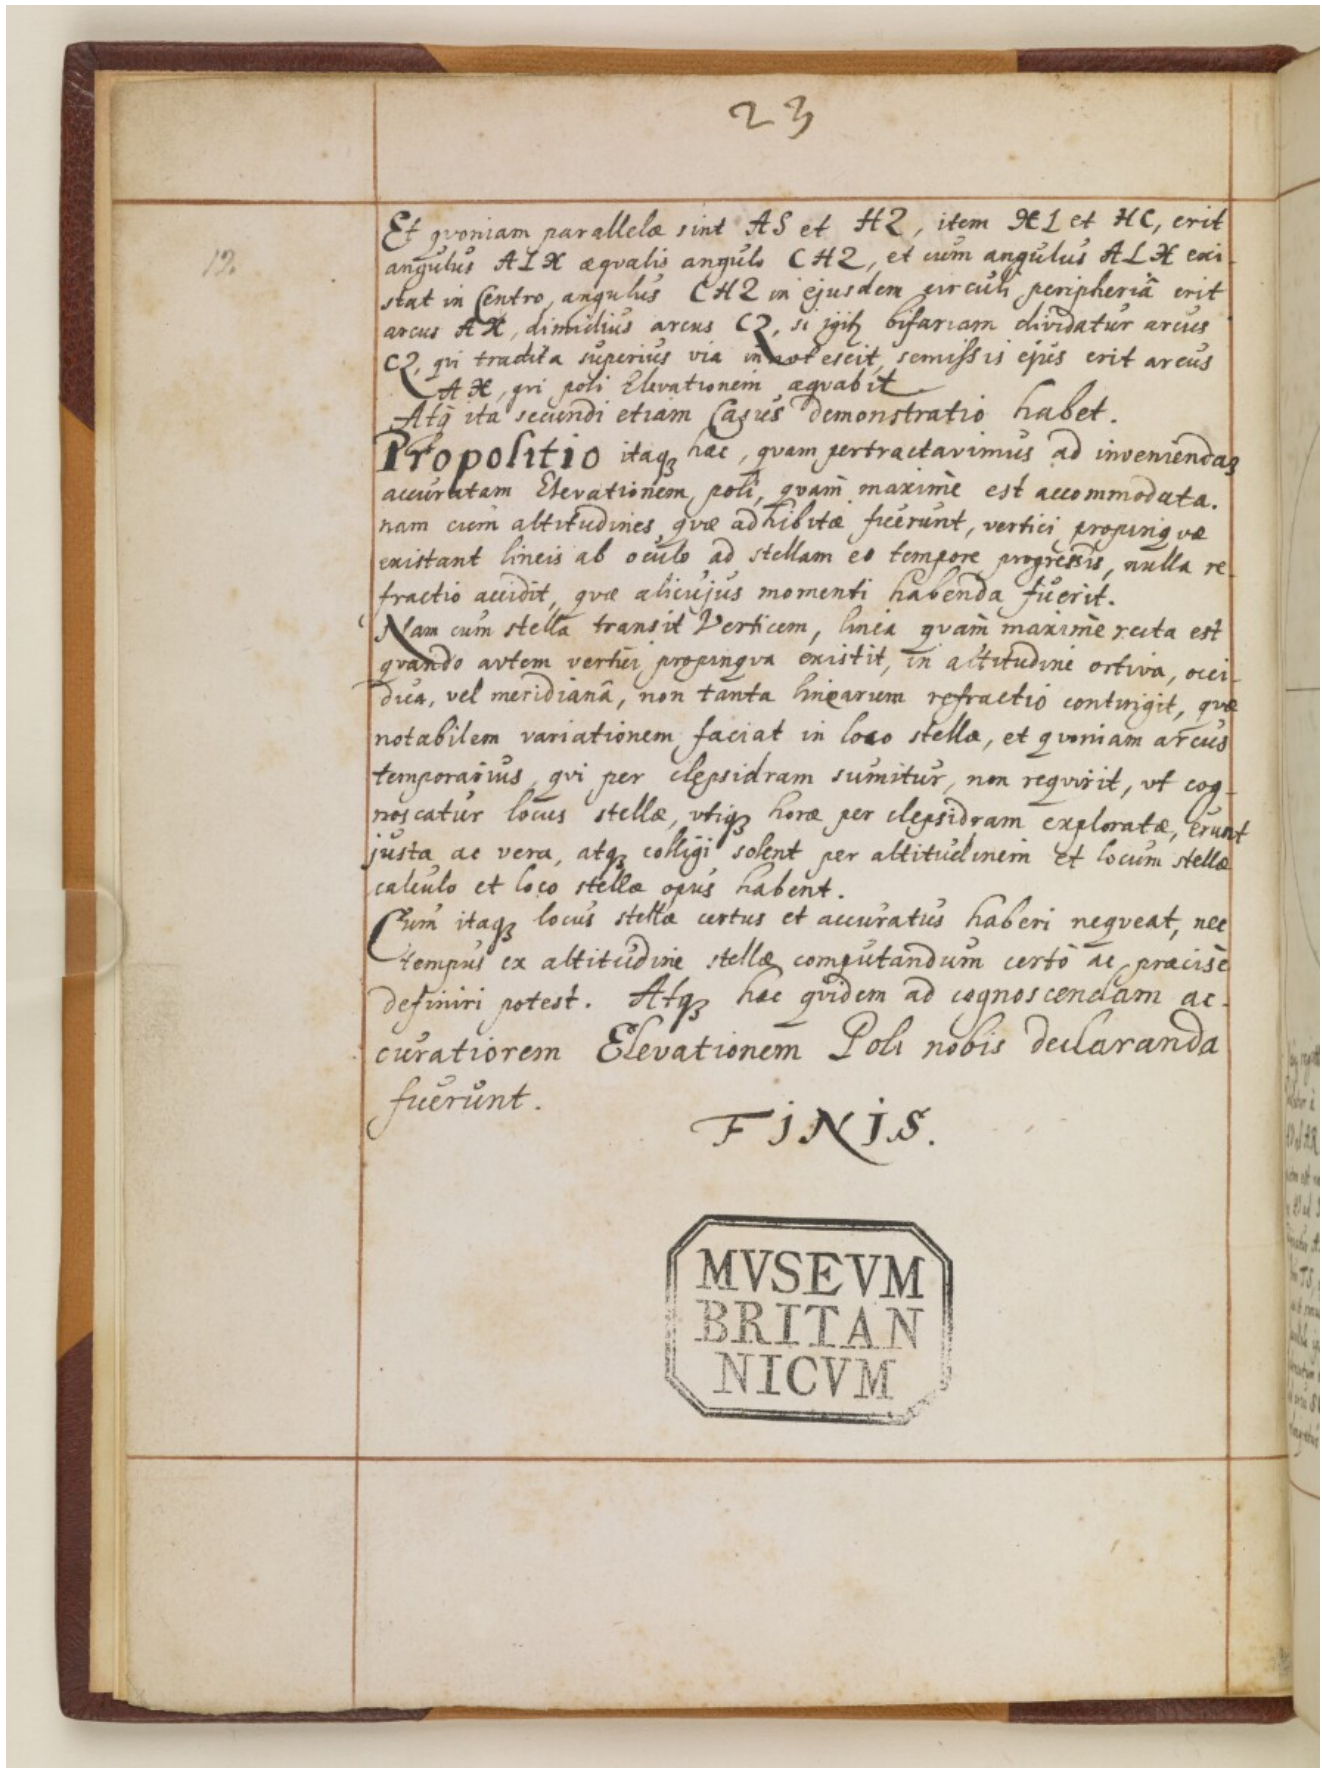 23
12.
Et qvoniam parallelæ sint AS et HZ, item ӾL et HC, erit
angulus ALӾ æqvalis angulo CHZ, et cum angulus ALӾ exi-
stat in Centro, angulus CHZ in ejusdem circuli peripheriâ erit
arcus AӾ, dimidius arcus CZ, si igitꝫ bifariam dividatur arcus
CZ, qvi tradita superius via innotescit, semissis ejus erit arcus
AӾ, qvi poli Elevationem æqvabit
Atq̃ ita secundi etiam Casus demonstratio habet.
Propositio itaqꝫ hæc, qvam pertractavimus ad inveniendaꝫ
accuratam Elevationem poli, qvam maximè est accommodata.
nam cum altitudines qvæ adhibitæ fuerunt, vertici propinqvæ
existant lineis ab oculo ad stellam eo tempore progressis, nulla re-
fractio accidit, qvæ alicujus momenti habenda fuerit.
Nam cum stella transit Verticem, linea qvam maximè recta est
qvando avtem vertici propinqva existit, in altitudine ortiva, occi-
dua, vel meridianâ, non tanta linearum refractio contingit, qvæ
notabilem variationem faciat in loco stellæ, et qvoniam arcus
temporarius, qvi per clepsidram sumitur, non reqvirit, vt cog-
noscatur locus stellæ, vtiqꝫ horæ per clepsidram exploratæ, erunt
justa ac vera, atqꝫ colligi solent per altitudinem et locum stellæ
calculo et loco stellæ opus habent.
Cum itaqꝫ locus stellæ certus et accuratus haberi neqveat, nec
tempus ex altitudine stellæ computandum certò ac præcisè
definiri potest. Atqꝫ hæc qvidem ad cognoscendam ac-
curatiorem Elevationem Poli nobis declaranda
fuerunt.
FINIS.
MVSEVM
BRITAN
NICVM